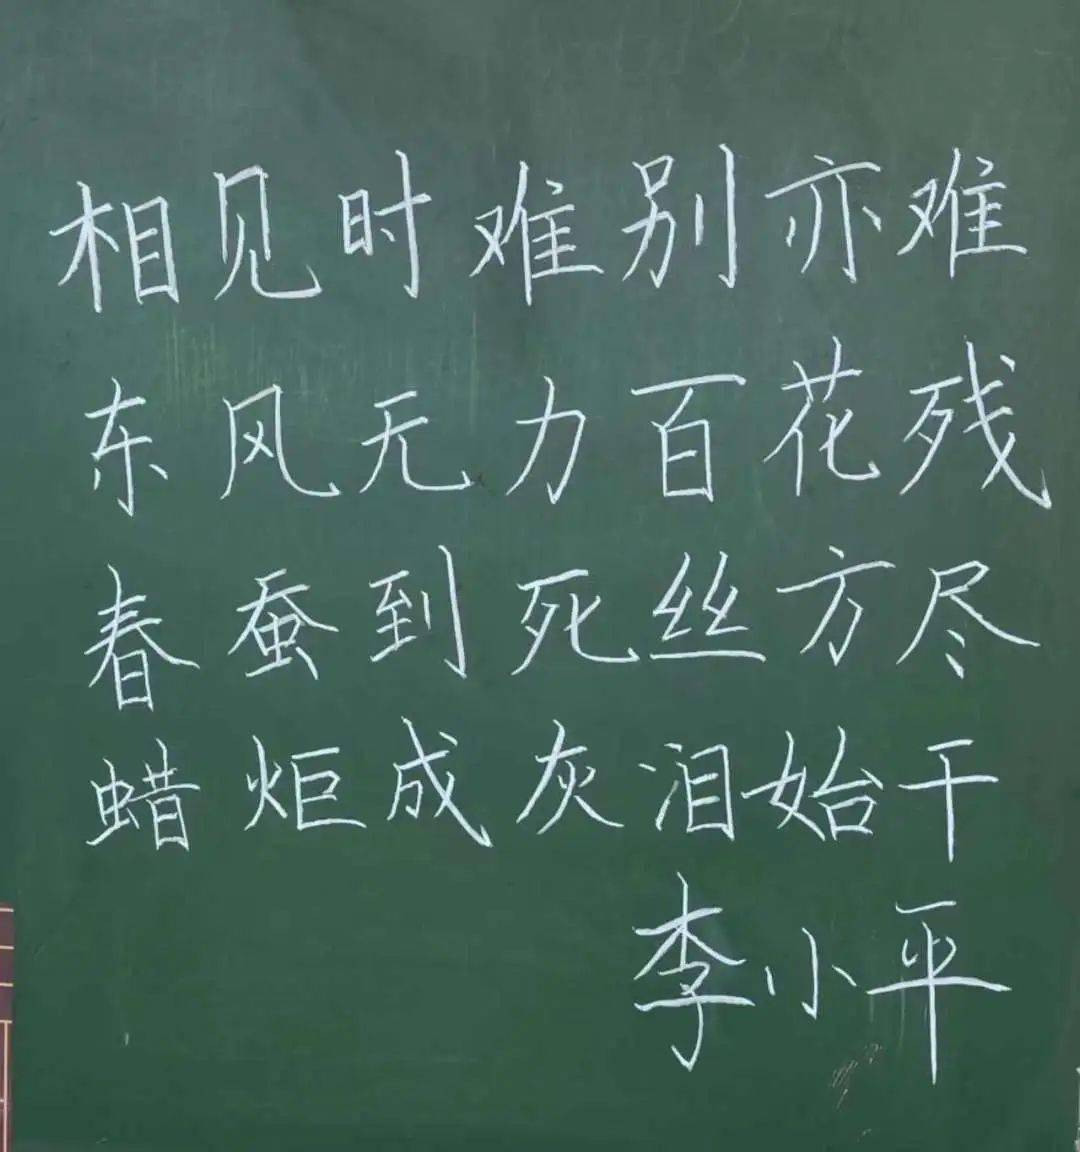 相见时难别亦难
东风无力百花残
春蚕到死丝方尽
蜡炬成灰泪始干
李小平